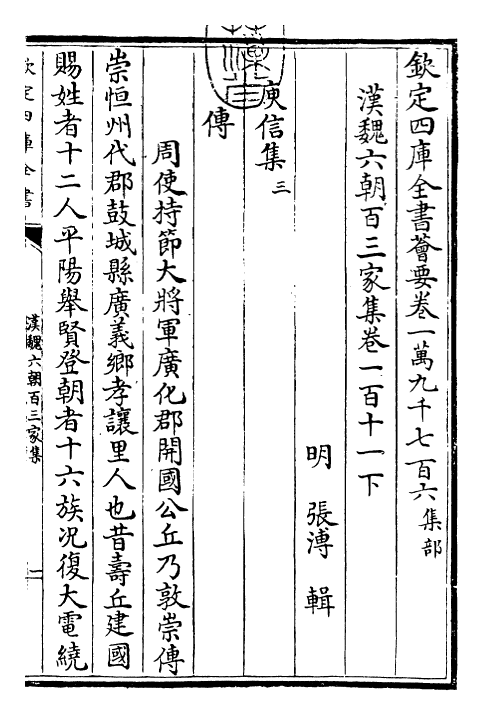 欽定四庫全書薈要卷一萬九千七百六 集部
漢魏六朝百三家集卷一百十一下
明 張溥 輯
庾信集 三
傳
周使持節大將軍廣化郡開國公丘乃敦崇傳
崇恒州代郡鼓城縣廣義鄉孝讓里人也昔壽丘建國
賜姓者十二人平陽舉賢登朝者十六族况復大電繞
欽定四庫全書
漢魏六朝百三家集